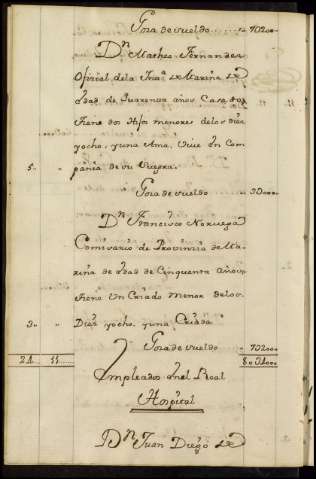 Goza de sueldo " 7D200"
Dn. Matheo Fernandez
Oficial de la Tesa. de Marina de
edad de Quarenta años Casado
tiene dos hijos menores de los diez
y ocho, y una Ama, Vive en Com-
5 " pañia de su Suegra.
Goza de sueldo
Dn. Francisco Noruega
Comisario de Provincia de Ma-
rina de edad de Cinquenta años
tiene Un Criado menor de los
3 " Diez y ocho, y una Criada
Goza de sueldo " 7D200"
21 11
Empleados en el Real
Hospital
Dn. Juan Diego de